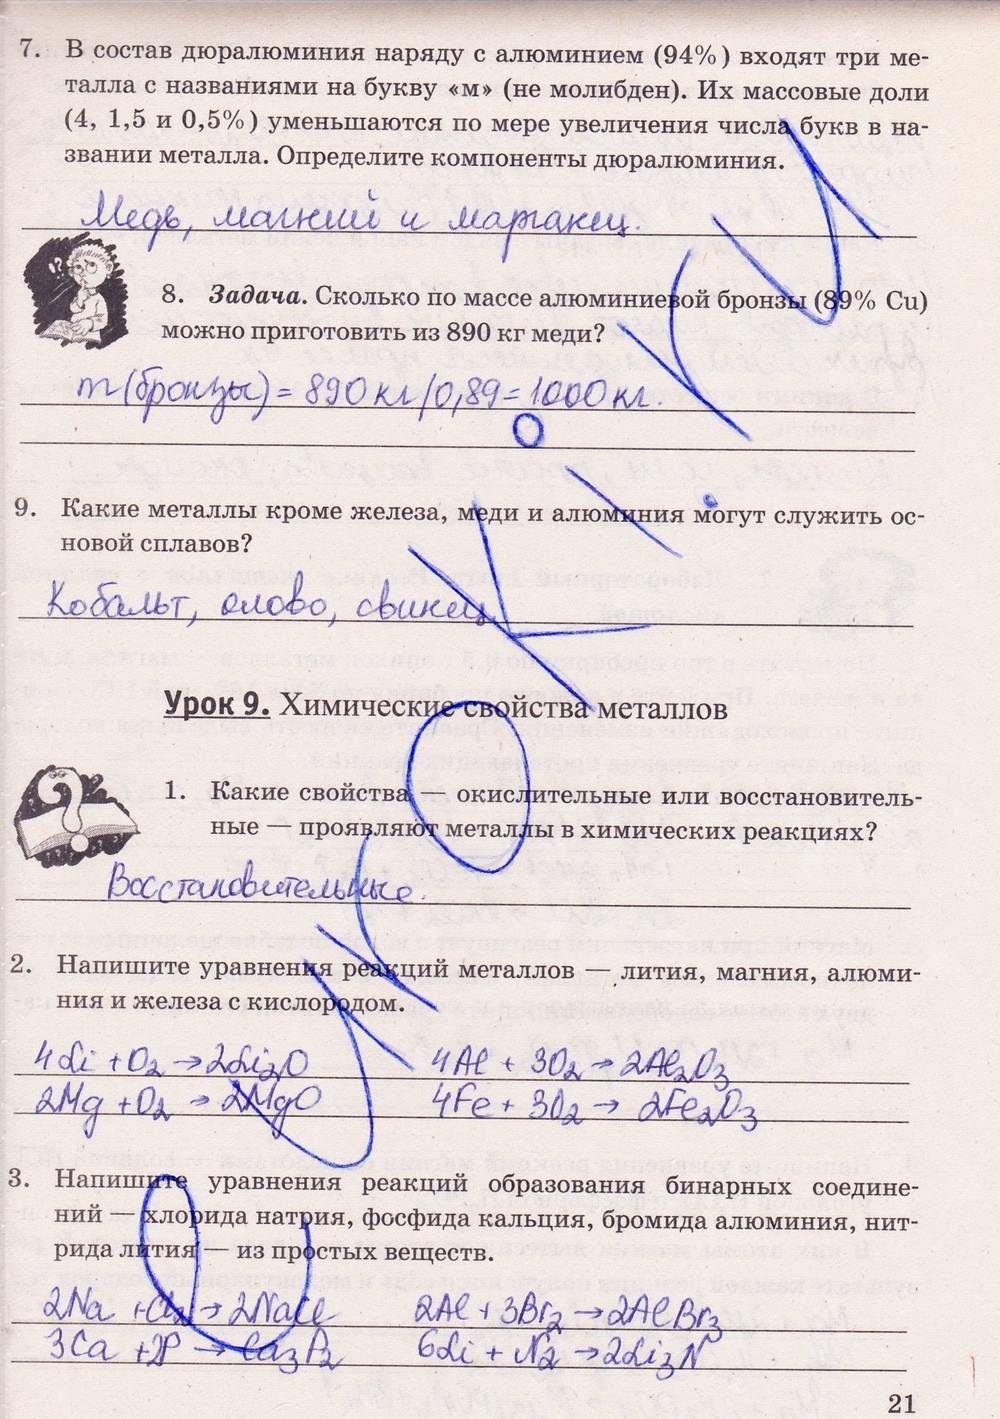 7. В состав дюралюминия наряду с алюминием (94%) входят три ме-
талла с названиями на букву «м» (не молибден). Их массовые доли
(4, 1,5 и 0,5%) уменьшаются по мере увеличения числа букв в на-
звании металла. Определите компоненты дюралюминия.
Медь, магний и марганец.
8. Задача. Сколько по массе алюминиевой бронзы (89% Cu)
можно приготовить из 890 кг меди?
m(бронзы) = 890 кг/0,89 = 1000 кг.
9. Какие металлы кроме железа, меди и алюминия могут служить ос-
новой сплавов?
Кобальт, олово, свинец.
Урок 9. Химические свойства металлов
1. Какие свойства — окислительные или восстановитель-
ные — проявляют металлы в химических реакциях?
Восстановительные.
2. Напишите уравнения реакций металлов — лития, магния, алюми-
ния и железа с кислородом.
4Li + O2 → 2Li2O 4Al + 3O2 → 2Al2O3
2Mg + O2 → 2MgO 4Fe + 3O2 → 2Fe2O3
3. Напишите уравнения реакций образования бинарных соедине-
ний — хлорида натрия, фосфида кальция, бромида алюминия, нит-
рида лития — из простых веществ.
2Na + Cl2 → 2NaCl 2Al + 3Br2 → 2AlBr3
3Ca + 2P → Ca3P2 6Li + N2 → 2Li3N
21